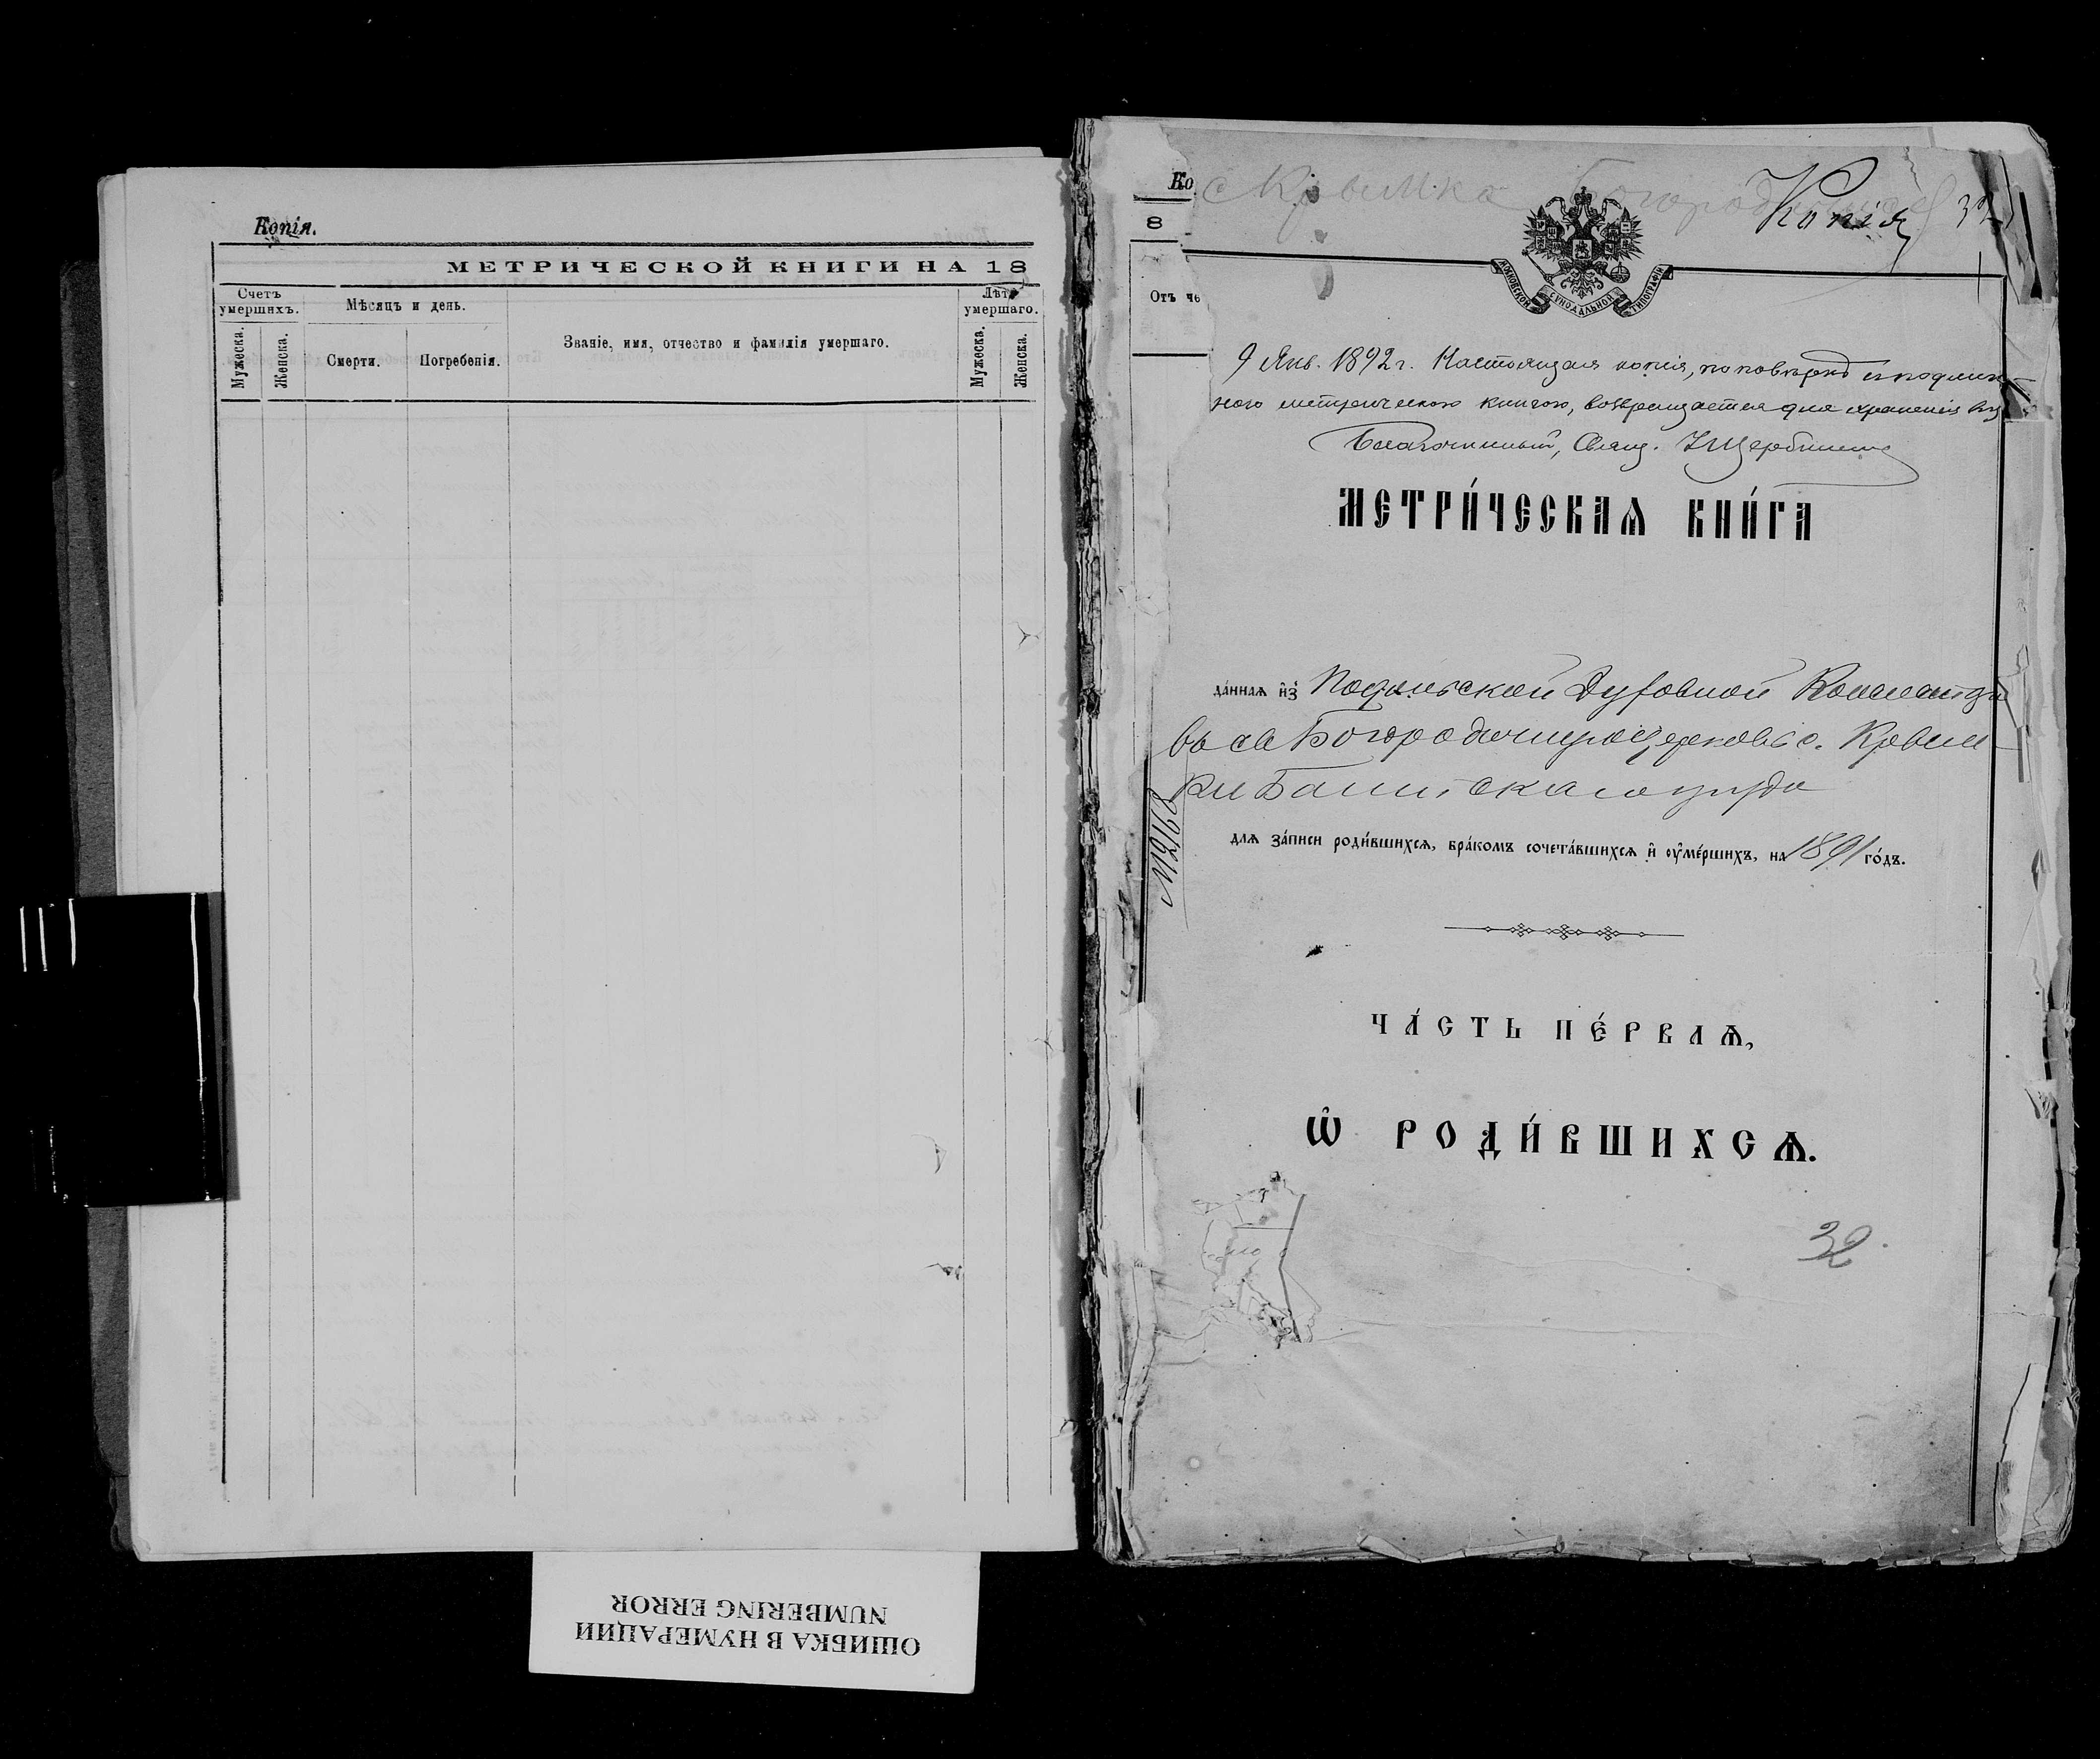 Копія.
МЕТРИЧЕСКОЙ КНИГИ НА 18
Счетъ умершихъ.
Мѣсяцъ и день.
Званіе, имя, отчество и фамилія умершаго.
Лѣта умершаго.
Мужеска.
Женска.
Смерти.
Погребенія.
Мужеска.
Женска.
Ко
с Крымка
Копія
32
8
МОСКОВСКОЙ СѴНОДАЛЬНОЙ ТИПОГРАФІИ
Отъ че
9 Янв. 1892 г. Настоящая копія, по повѣркѣ с подлин-
ною метрическою книгою, возвращается для храненія
Благочинный, Свящ. Щербина
МЕТРИ́ЧЕСКАѦ КНИ́ГА
да́ннаѧ и҆зъ Подольской Духовной Консисторіи
въ св Богородичную церковь с. Крым-
ки Балтскаго уѣзда
№2168
длѧ за́писи роди́вшихсѧ, бра́комъ сочета́вшихсѧ и҆ оу҆ме́ршихъ, на 1891 го́дъ.
ЧА́СТЬ ПЕ́РВАѦ,
Ѡ҆ РОДИ́ВШИХСѦ.
32
ОШИБКА В НУМЕРАЦИИ
NUMBERING ERROR